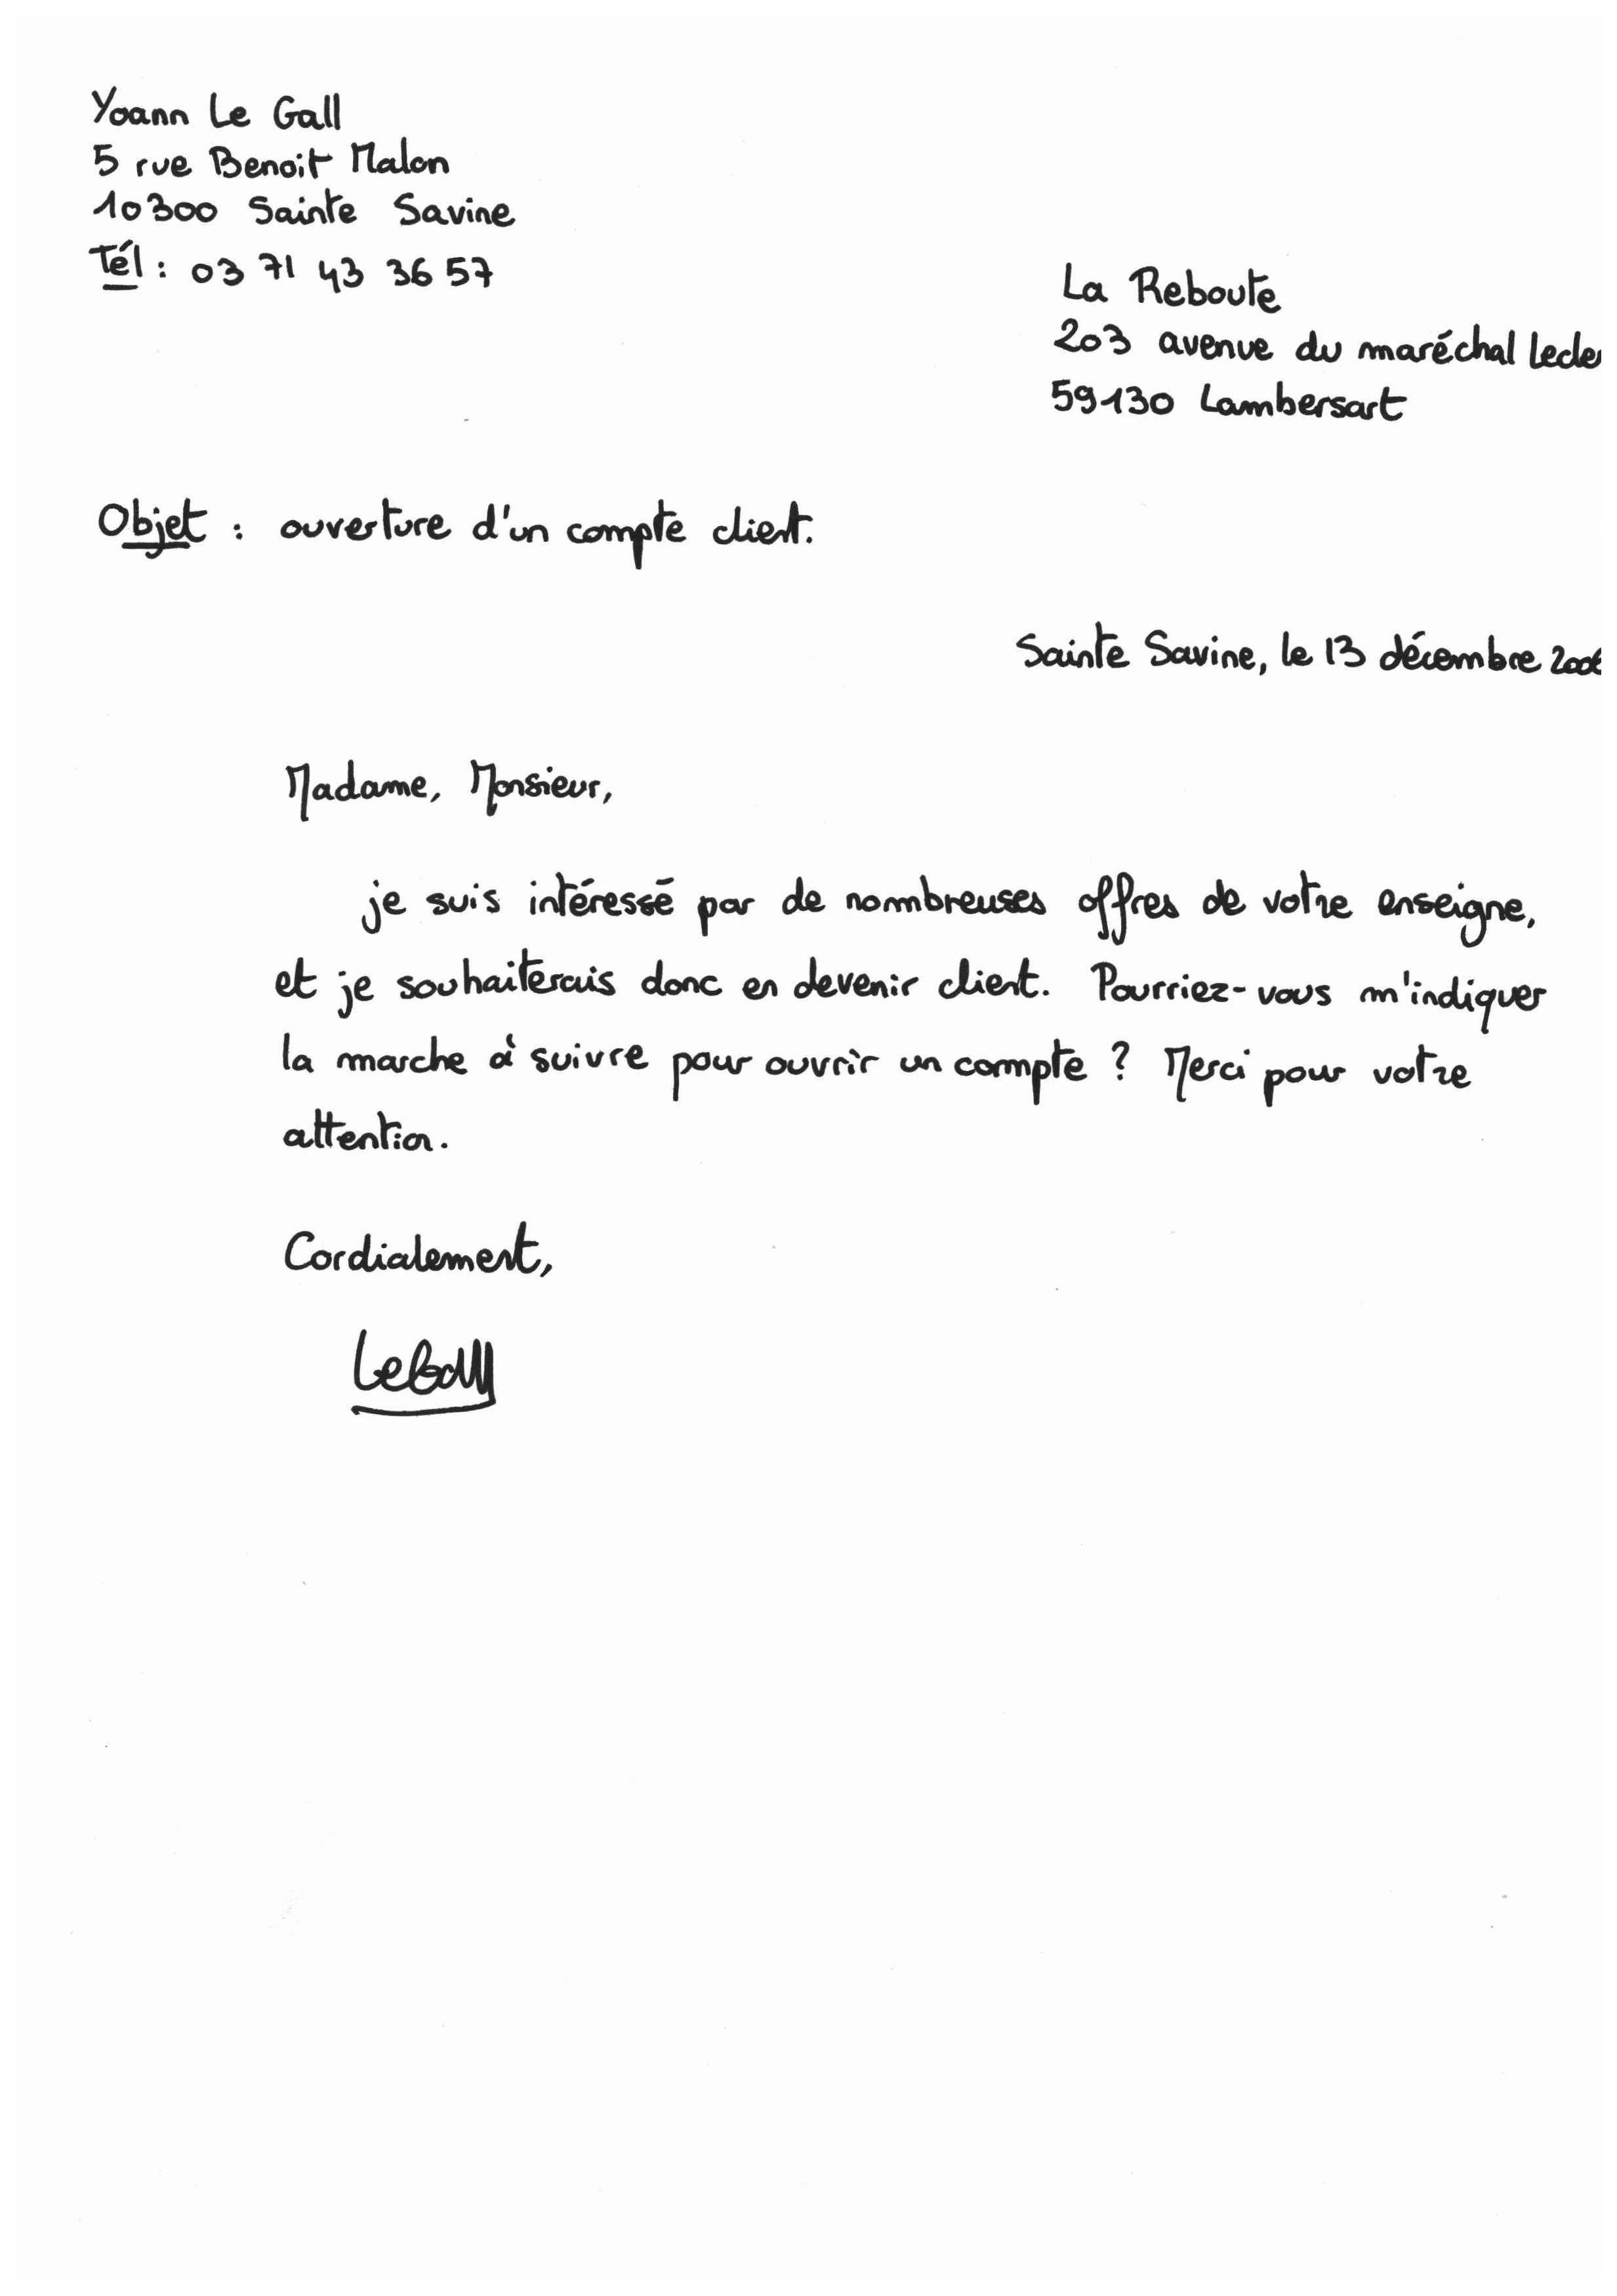 Yoann Le Gall
5 rue Benoit Malon
10300 Sainte Savine
Tél : 03 71 43 36 57
La Reboute
203 avenue du maréchal
59130 Lambersart
Objet : ouverture d'un compte client.
Sainte Savine, le 13 décembre
Madame, Monsieur,
je suis intéressé par de nombreuses offres de votre enseigne,
et je souhaiterais donc en devenir client. Pourriez-vous m'indiquer
la marche à suivre pour ouvrir un compte ? Merci pour votre
attention.
Cordialement,
LeGall